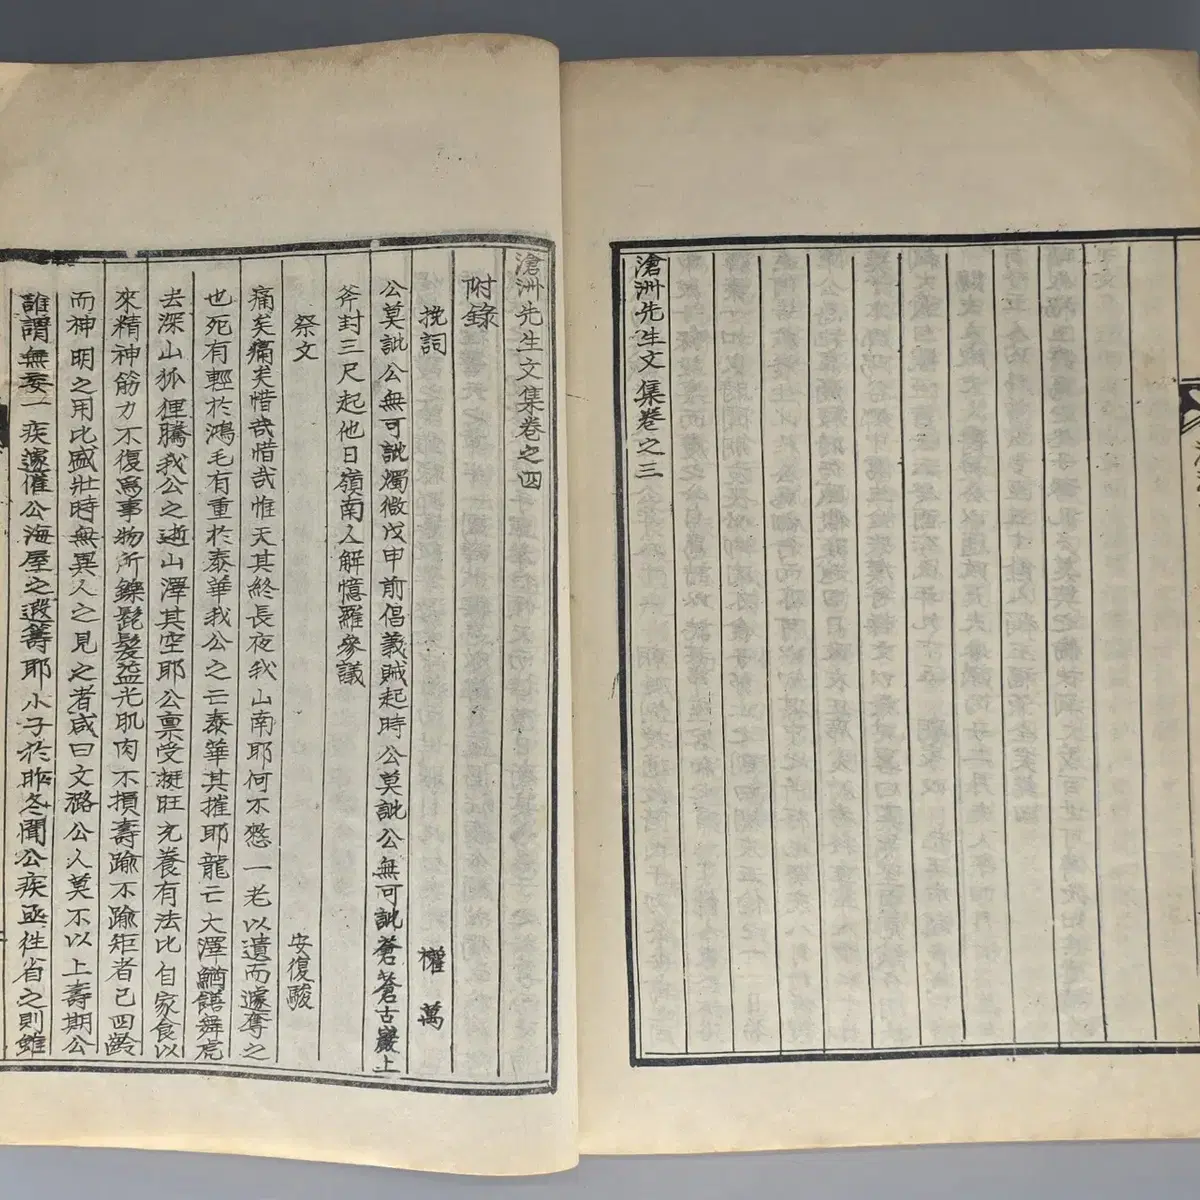 滄洲先生文集卷之三
滄洲先生文集卷之四
附錄
挽詞 權萬
公莫訿公無可訿燭微戊申前倡義賊起時公莫訿公無可訿蒼蒼古巖上
斧封三尺起他日嶺南人解憶羅參議
祭文 安復駿
痛矣痛矣惜哉惜哉惟天其終長夜我山南耶何不憖一老以遺而遽奪之
也死有輕於鴻毛有重於泰華我公之亡泰華其摧耶龍亡大澤鰌鱔舞虎
去深山狐狸騰我公之逝山澤其空耶公稟受挺旺充養有法比自家食以
來精神筋力不復爲事物所鑠髭髮益光肌肉不損壽踰不踰矩者已四齡
而神明之用比盛壯時無異人之見之者咸曰文潞公人莫不以上壽期公
誰謂無妄一疾遽催公海屋之遐籌耶小子於昨冬聞公疾亟徃省之則雖